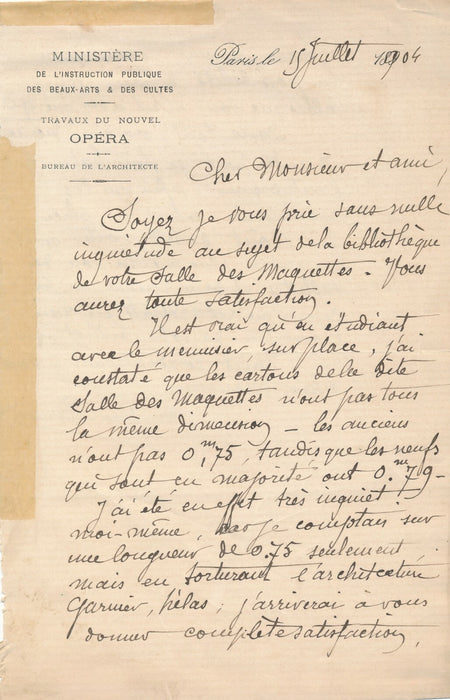 MINISTÈRE
DE L'INSTRUCTION PUBLIQUE
DES BEAUX-ARTS & DES CULTES
TRAVAUX DU NOUVEL
OPÉRA
BUREAU DE L'ARCHITECTE
Paris le 15 Juillet 1904
Cher Monsieur et ami,
Soyez je vous prie sans nulle
inquiétude au sujet de la bibliothèque
de votre Salle des Maquettes. Vous
aurez toute satisfaction.
Il est vrai qu'en étudiant
avec le menuisier, sur place, j'ai
constaté que les cartons de la dite
Salle des Maquettes n'ont pas tous
la même dimension – les anciens
n'ont pas 0,m75, tandis que les neufs
qui sont en majorité ont 0.m79 –
J'ai été en effet très inquiet
moi-même, car je comptais sur
une longueur de 0.75 seulement,
mais en torturant l'architecture
Garnier, hélas, j'arriverai à vous
donner complète satisfaction,